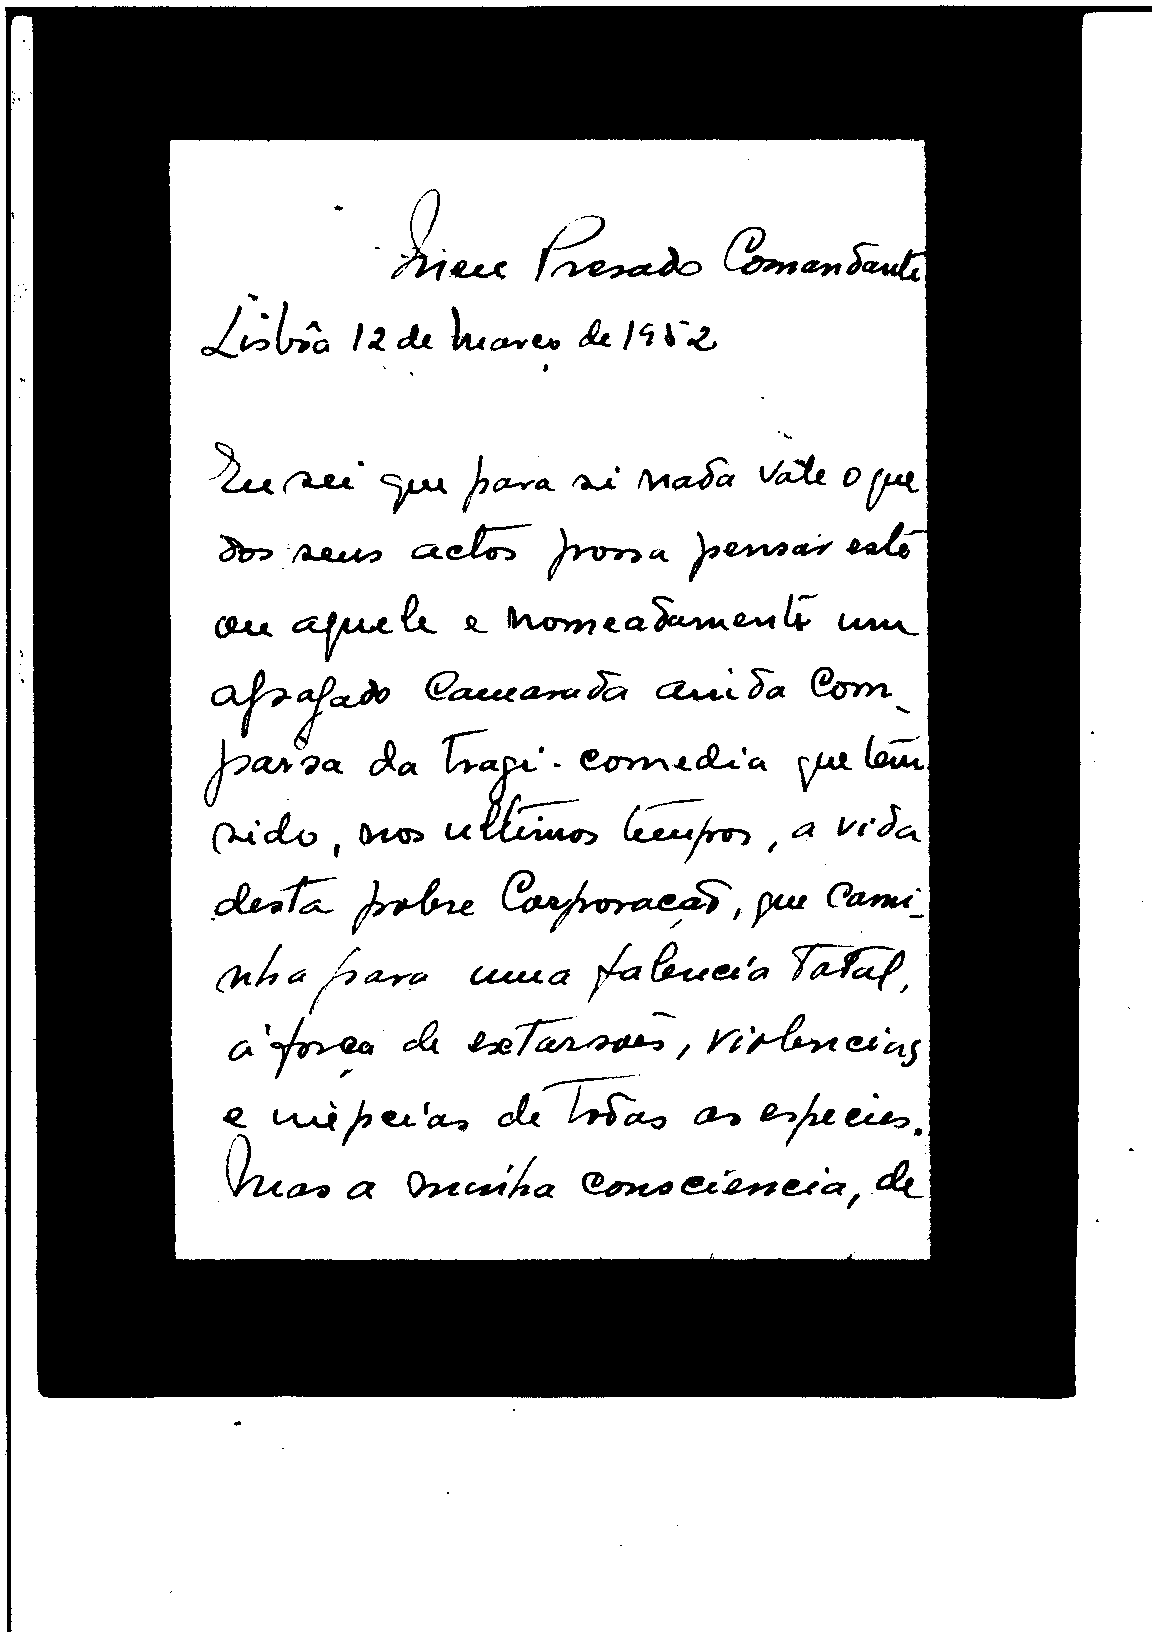 Meu Presado Comandante
Lisbôa 12 de Março de 1952
Eu sei que para si nada vale o que
dos seus actos possa pensar este
ou aquele e nomeadamente um
apagado Camarada ainda Com-
parsa da tragi-comedia que tem
sido, nos ultimos tempos, a vida
desta pobre Corporação, que Cami-
nha para uma falencia Total,
á força de extorsões, violencias
e inépcias de Todas as especies.
Mas a minha consciencia, de